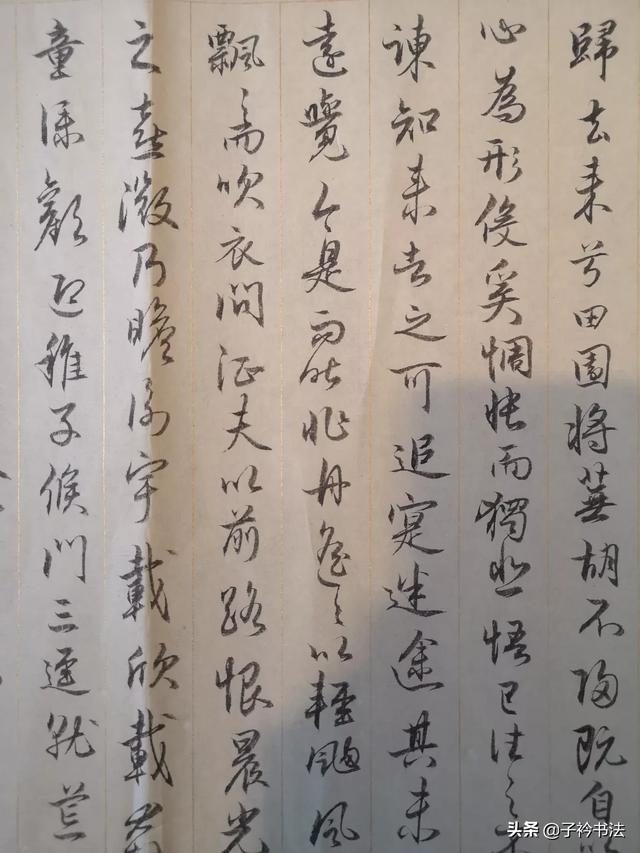 歸去来兮田園將蕪胡不歸既自以
心為形役奚惆悵而獨悲悟已往之不
諫知来者之可追寔迷途其未
遠覺今是而昨非舟遙々以輕颺風
飄而吹衣問征夫以前路恨晨光
之熹微乃瞻衡宇載欣載奔
童僕歡迎稚子候門三逕就荒
头条 @子衿书法